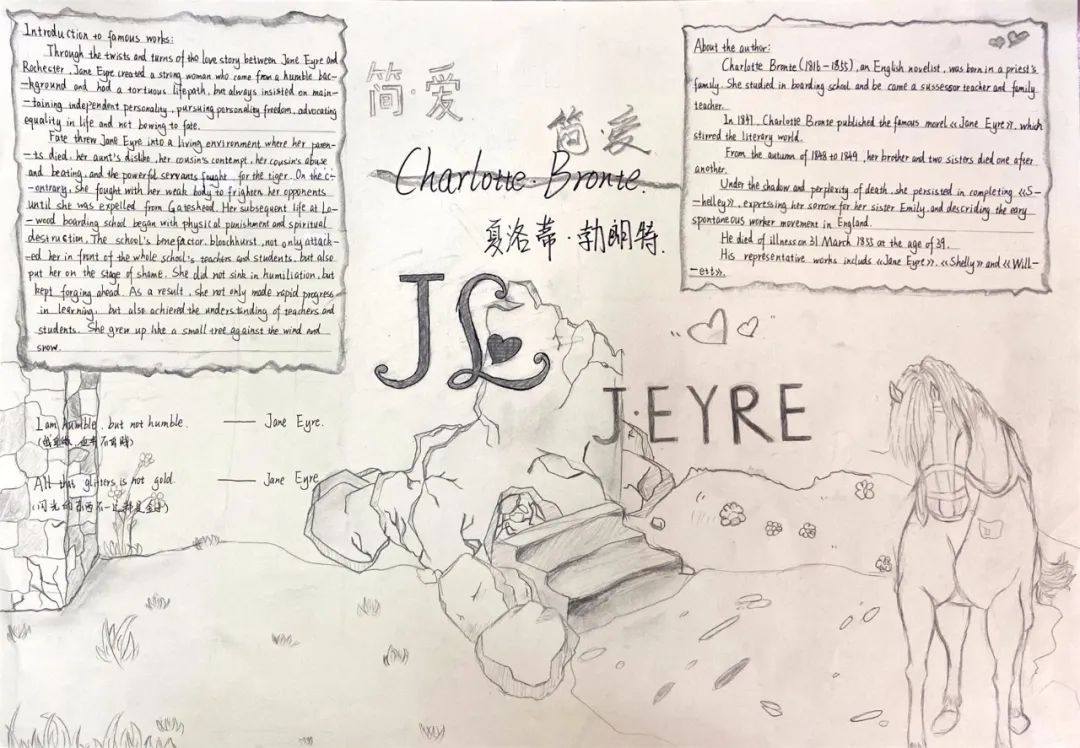 Introduction to famous works:
Through the twists and turns of the love story between Jane Eyre and
Rochester, Jane Eyre created a strong woman who came from a humble bac-
-kground and had a tortuous lifepath, but always insisted on main-
-taining independent personality, pursuing personality freedom, advocating
equality in life and not bowing to fate.
Fate threw Jane Eyre into a living environment where her paren-
-ts died, her aunt's dislike, her cousin's contempt, her cousin's abuse
and beating, and the powerful servants fought for the tiger. On the c-
-ontrary, she fought with her weak body to frighten her opponents
until she was expelled from Gateshead. Her subsequent life at Lo-
-wood boarding school began with physical punishment and spiritual
destruction. The school's benefactor, blochhurst, not only attack-
-ed her in front of the whole school's teachers and students, but also
put her on the stage of shame. She did not sink in humiliation, but
kept forging ahead. As a result, she not only made rapid progress
in learning, but also achieved the understanding of teachers and
students. She grew up like a small tree against the wind and
snow.
I am humble, but not humble. —— Jane Eyre.
All that glitters is not gold. —— Jane Eyre
简·爱
简·爱
Charlotte·Bronte.
夏洛蒂·勃朗特.
JL
J·EYRE
About the author:
Charlotte Bronte (1816-1855), an English novelist, was born in a priest's
family. She studied in boarding school and be came a sussessor teacher and family
teacher.
In 1847, Charlotte Bronte published the famous morel «Jane Eyre», which
stirred the literary world.
From the autumn of 1848 to 1849, her brother and two sisters died one after
another.
Under the shadow and perplexity of death, she persisted in completing «S-
-helley», expressing her sorrow for her sister Emily and descriding the eary
spontaneous worker movement in England.
He died of illness on 31 March 1855 at the age of 39.
His representative works includs «Jane Eyre», «Shelly» and «Will-
-ett».